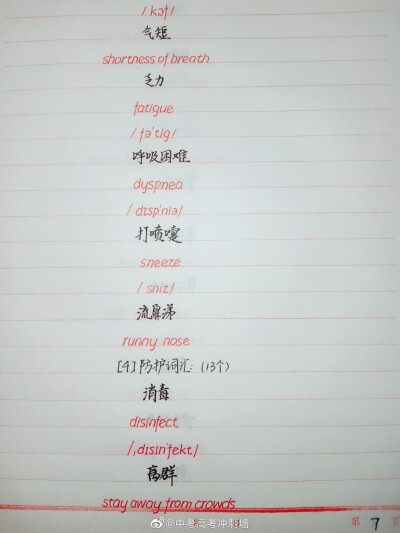 /kɔf/
气短
shortness of breath
乏力
fatigue
/fə'tiɡ/
呼吸困难
dyspnea
/dɪsp'niə/
打喷嚏
sneeze
/sniz/
流鼻涕
runny nose
[4]防护词汇:(13个)
消毒
disinfect
/,dɪsɪn'fekt/
离群
stay away from crowds
第 7 页
@中考高考冲刺墙